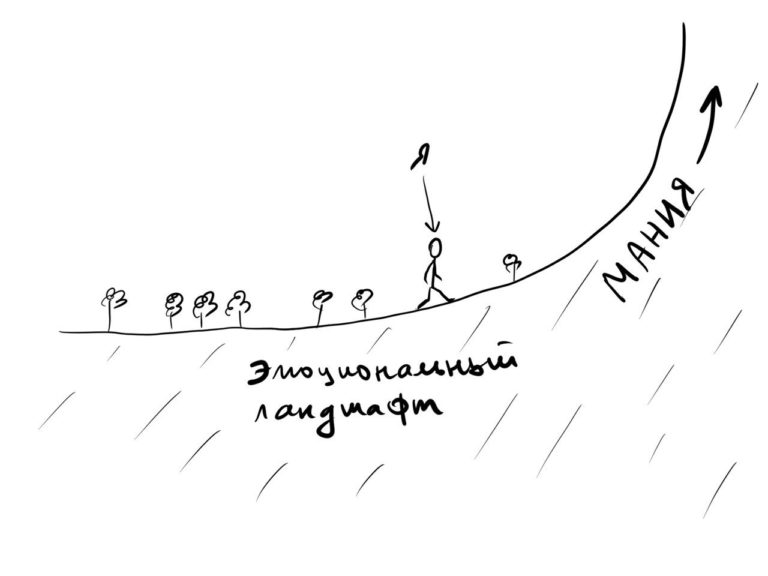 Я
МАНИЯ
Эмоциональный
ландшафт